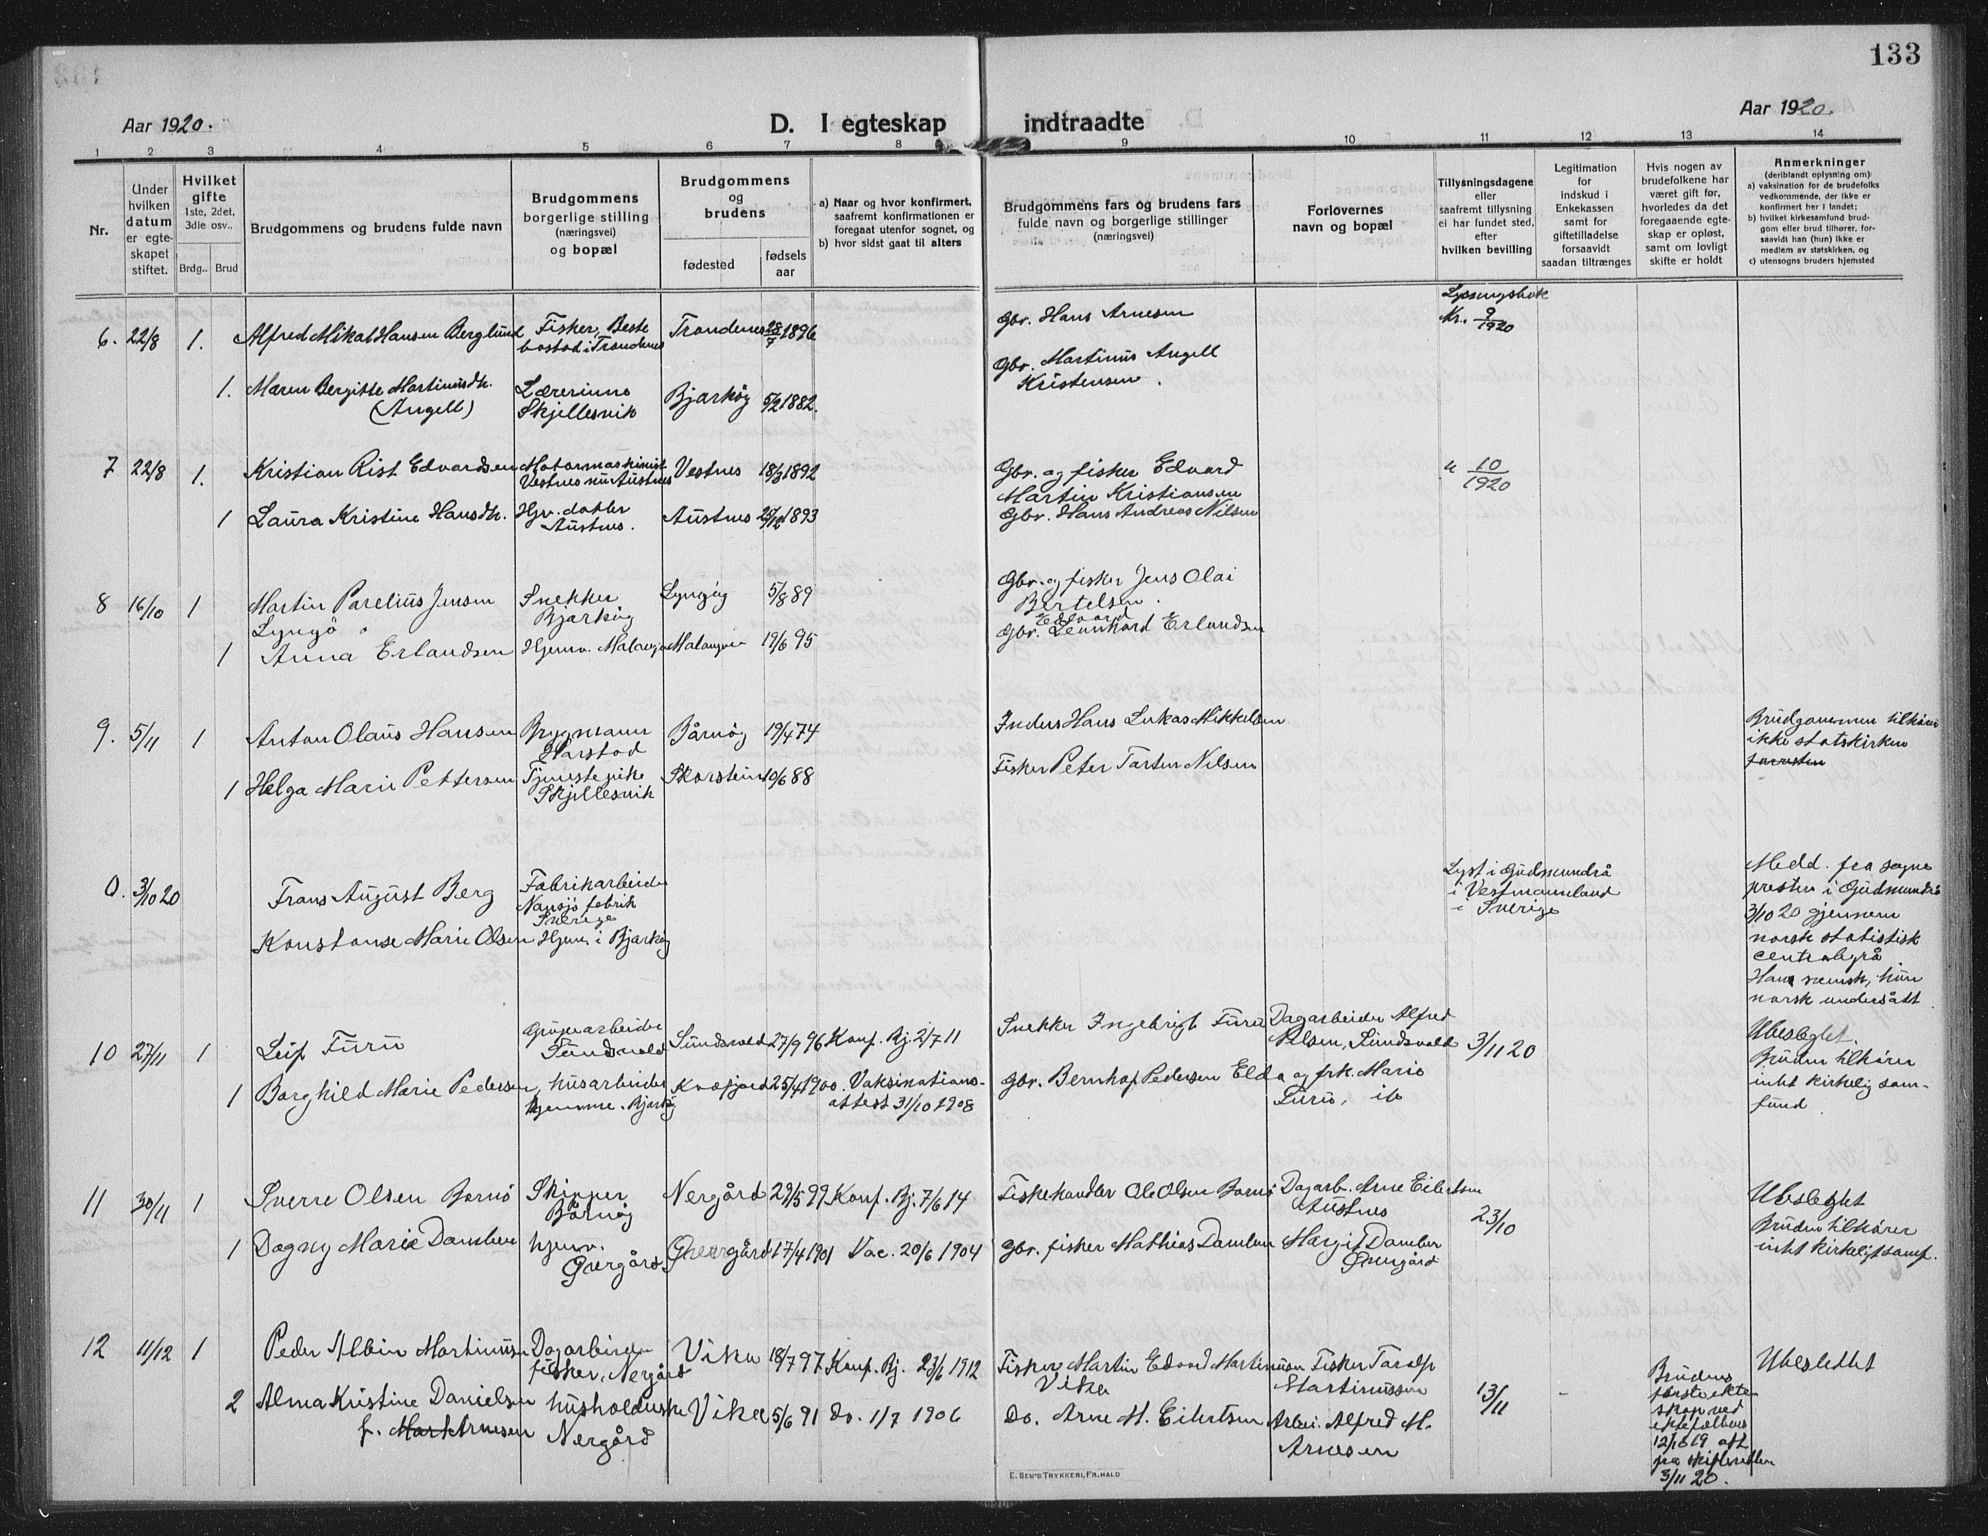 133
Aar 1920.
D. I egteskap indtraadte
Aar 1920.
1 2 3 4 5 6 7 8 9 10 11 12 13 14
Nr.
Under
hvilken
datum
er egte-
skapet
stiftet.
Hvilket
gifte
1ste, 2det,
3die osv..
Brdg.. Brud
Brudgommens og brudens fulde navn
Brudgommens
borgerlige stilling
(næringsvei)
og bopæl
Brudgommens
og
brudens
fødested
fødsels
aar
a) Naar og hvor konfirmert,
saafremt konfirmationen er
foregaat utenfor sognet, og
b) hvor sidst gaat til alters
Brudgommens fars og brudens fars
fulde navn og borgerlige stillinger
(næringsvei)
Forlovernes
navn og bopæl
Tillysningsdagene
eller
saafremt tillysning
ei har fundet sted,
efter
hvilken bevilling
Legitimation
for
indskud i
Enkekassen
samt for
giftetilladelse
forsaavidt
saadan tiltrænges
Hvis nogen av
brudefolkene har
været gift før,
hvorledes da det
foregaaende egte-
skap er opløst,
samt om lovligt
skifte er holdt
Anmerkninger
(deriblandt oplysning om)
a) vaksination for de brudefolks
vedkommende, der ikke er
konfirmert her i landet;
b) hvilket kirkesamfund brud-
gom eller brud tilhører, for-
saavidt han (hun) ikke er
medlem av statskirken, og
c) utensogns bruders hjemsted
6. 22/8 1. Alfred Mikal Hansen Berglund
Fisker, Beste
bostad i Trondenes
Trondenes 28/7 1896
Gbr. Hans Arnesen
Lysningsbok
Nr. 9/1920
1. Maren Bergitte Martinusdtr.
(Angell)
Lærerinne
Skjellesvik
Bjarkøy 5/2 1882.
Gbr. Martinus Angell
Kristensen.
7 22/8 1. Kristian Rist Edvardsen
Motormaskinist
Vestnes nu Austnes
Vestnes 18/3 1892
Gbr. og fisker Edvard
Martin Kristiansen
" 10/1920
1 Laura Kristine Hansdtr.
Hjv. datter
Austnes.
Austnes 25/12 1893
Gbr. Hans Andreas Nilsen
8 16/10 1 Martin Parelius Jensen
Lyngö
Snekker
Bjarköy
Lyngøy 5/8 89
Gbr. og fisker Jens Olai
Bertelsen.
1 Anna Erlandsen
Hjemv. Malangen
Malangen 19/6 95
Edvard
Gbr. Leonhard Erlandsen
9. 5/11 1 Anton Olaus Hansen
Brygmann
Harstad
Bårnøy 19/4 74
Inderst Hans Lukas Mikkelsen
Brudgommen tilhører
ikke statskirken
1 Helga Marie Pettersen
Tjenestepike
Skjellesvik
Skorstein 10/6 88
Fisker Peter Tarter Nilsen
0. 3/10 20
Frans August Berg
Fabrikarbeider
Nansjö fabrik
Sverige
Konstanse Marie Olsen
Hjemv. i Bjarköy
Lyst i Gudmundrå
i Vestmannland
i Sverige
Medd. fra sogne
presten i Gudmundrå
3/10 20 gjennem
norsk statistisk
centralbyrå
Han svensk, hun
norsk undersått
10 27/11 1 Leif Furu
Grubearbeider
Sundsvold
Sundsvold 27/9 96 Konf. Bj. 2/7 11
Snekker Ingebrigt Furu
Dagarbeider Alfred
Olsen, Sundsvold
3/11 20
Ubeslegtet.
Bruden tilhører
intet kirkelig sam-
fund
1 Borghild Marie Pedersen,
husarbeider
hjemme. Bjarköy
Kvæfjord 25/4 1900. Vaksinations-
attest 31/10 1908
Gbr. Bernhof Pedersen Elda
og frk. Marie
Furu, ib
11 30/11 1 Sverre Olsen Bornö
Skipper
Bårnöy
Nergård 29/5 99 Konf. Bj. 7/6 14
Fiskehandler Ole Olsen Bornö
Dagarb. Arne Eilertsen
Austnes
23/10
Ubeslegtet
Bruden tilhører
intet kirkeligt samf.
1 Dagny Marie Danielsen
hjemv.
Övergård
Övergård 17/4 1901 Vac. 20/6 1904
Gbr. fisker Mathias Danielsen
Margit Danielsen
Övergård
12 11/12 1 Peder Albin Martinussen
Dagarbeider
fisker, Nergård
Vika 18/7 97 Konf. Bj. 23/6 1912
Fisker Martin Edvard Martinussen
Vika
Fisker Toralf
Martinussen
13/11
-
Brudens
første ekte
skap ved
12/1 19. att
fra skifteretten
3/11 20.
Ubeslektet
2 Alma Kristine Danielsen
f. Arnesen
husholderske
Nergård
Vika 5/6 91 do. 1/7 1906
Do. Arne M. Eilertsen
Arbei. Alfred M.
Arnesen
E. SEM'S TRYKKERI, FR.HALD